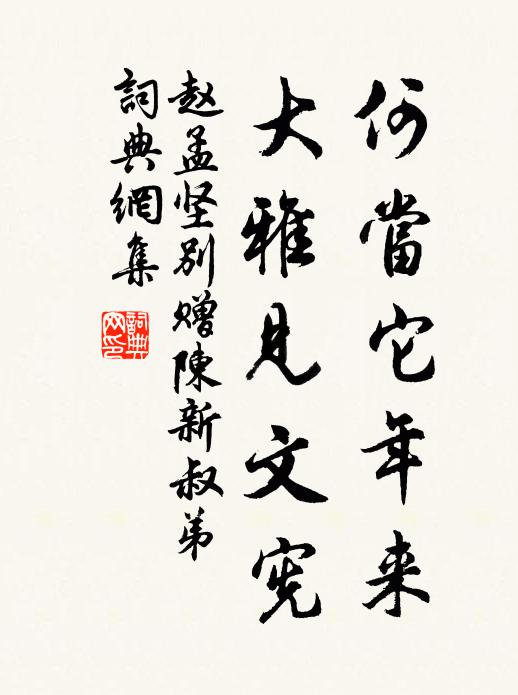 何當它年来
大雅見文宪
赵孟坚别赠陳新叔弟
詞典網集
詞典网印